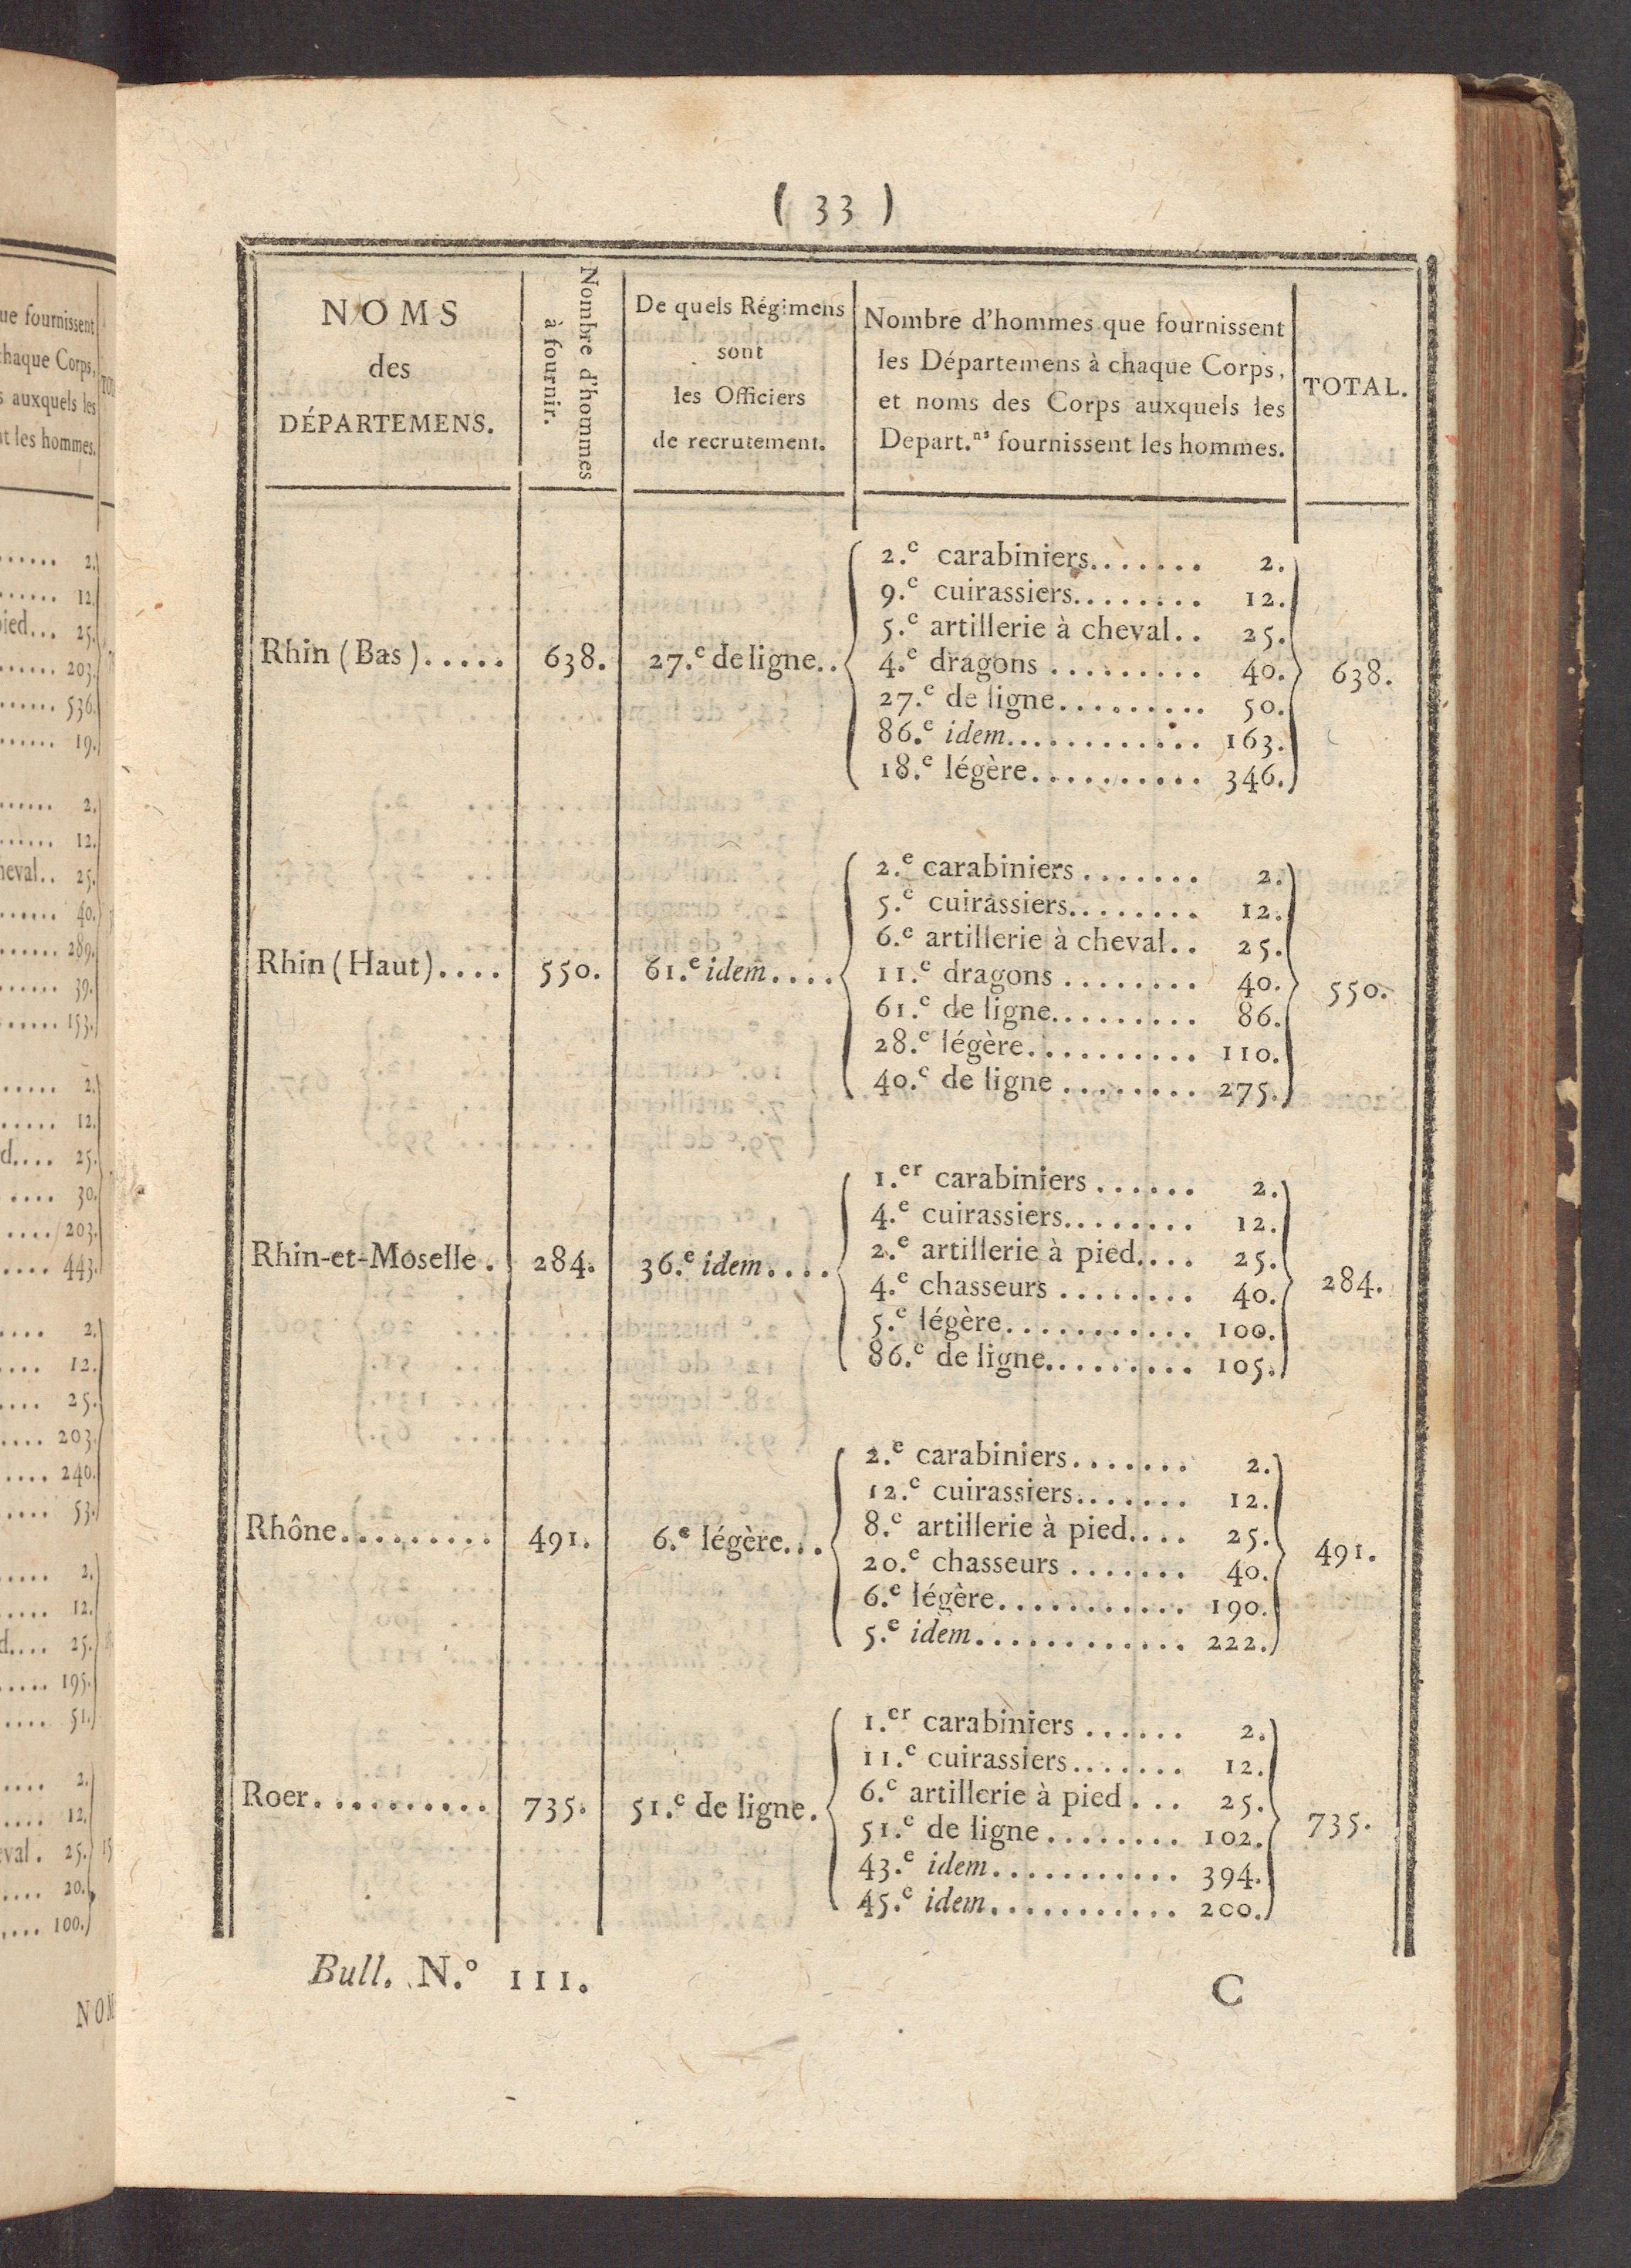 ( 33 )
NOMS
des
DÉPARTEMENS.
Nombre d'hommes
à fournir.
De quels Régimens
sont
les Officiers
de recrutement.
Nombre d'hommes que fournissent
les Départemens à chaque Corps,
et noms des Corps auxquels les
Depart.ns fournissent les hommes.
TOTAL.
Rhin (Bas)..... 638. 27.e de ligne.. 638.
2.e carabiniers....... 2.
9.e cuirassiers........ 12.
5.e artillerie à cheval.. 25.
4.e dragons ......... 40.
27.e de ligne......... 50.
86.e idem............ 163.
18.e légère.......... 346.
Rhin (Haut).... 550. 61.e idem.... 550.
2.e carabiniers....... 2.
5.e cuirassiers........ 12.
6.e artillerie à cheval.. 25.
11.e dragons ........ 40.
61.e de ligne......... 86.
28.e légère.......... 110.
40.e de ligne ........ 275.
Rhin-et-Moselle. 284. 36.e idem.... 284.
1.er carabiniers ...... 2.
4.e cuirassiers........ 12.
2.e artillerie à pied.... 25.
4.e chasseurs ........ 40.
5.e légère........... 100.
86.e de ligne......... 105.
Rhône......... 491. 6.e légère... 491.
2.e carabiniers....... 2.
12.e cuirassiers....... 12.
8.e artillerie à pied.... 25.
20.e chasseurs ....... 40.
6.e légère........... 190.
5.e idem............. 222.
Roer.......... 735. 51.e de ligne. 735.
1.er carabiniers ...... 2.
11.e cuirassiers....... 12.
6.e artillerie à pied ... 25.
51.e de ligne........ 102.
43.e idem........... 394.
45.e idem........... 200.
Bull. N.o 111.
C